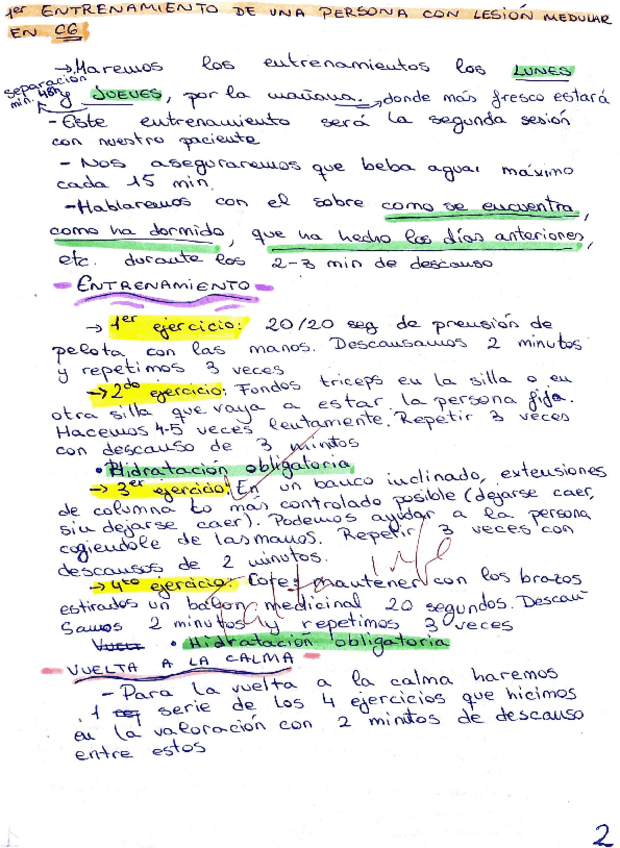 1er ENTRENAMIENTO DE UNA PERSONA CON LESIÓN MEDULAR
EN C6
→ Haremos los entrenamientos los LUNES
separación
min. 48h y JUEVES, por la mañana. → donde más fresco estará
- Este entrenamiento será la segunda sesión
con nuestro paciente
- Nos aseguraremos que beba agua: máximo
cada 15 min.
- Hablaremos con el sobre como se encuentra,
como ha dormido, que ha hecho los días anteriores,
etc. durante los 2-3 min de descanso
- ENTRENAMIENTO -
→ 1er ejercicio: 20/20 seg de prensión de
pelota con las manos. Descansamos 2 minutos
y repetimos 3 veces
→ 2do ejercicio: Fondos triceps en la silla o en
otra silla que vaya a estar la persona fija.
Hacemos 4-5 veces lentamente. Repetir 3 veces
con descanso de 3 minutos
• Hidratación obligatoria
→ 3er ejercicio: En un banco inclinado, extensiones
de columna lo mas controlado posible (dejarse caer,
sin dejarse caer). Podemos ayudar a la persona
cogiendole de las manos. Repetir 3 veces con
descansos de 2 minutos.
→ 4to ejercicio: Core: mantener con los brazos
estirados un balon medicinal 20 segundos. Descan-
samos 2 minutos y repetimos 3 veces
Vuelt • Hidratación obligatoria
- VUELTA A LA CALMA -
- Para la vuelta a la calma haremos
1 serie de los 4 ejercicios que hicimos
en la valoración con 2 minutos de descanso
entre estos
2